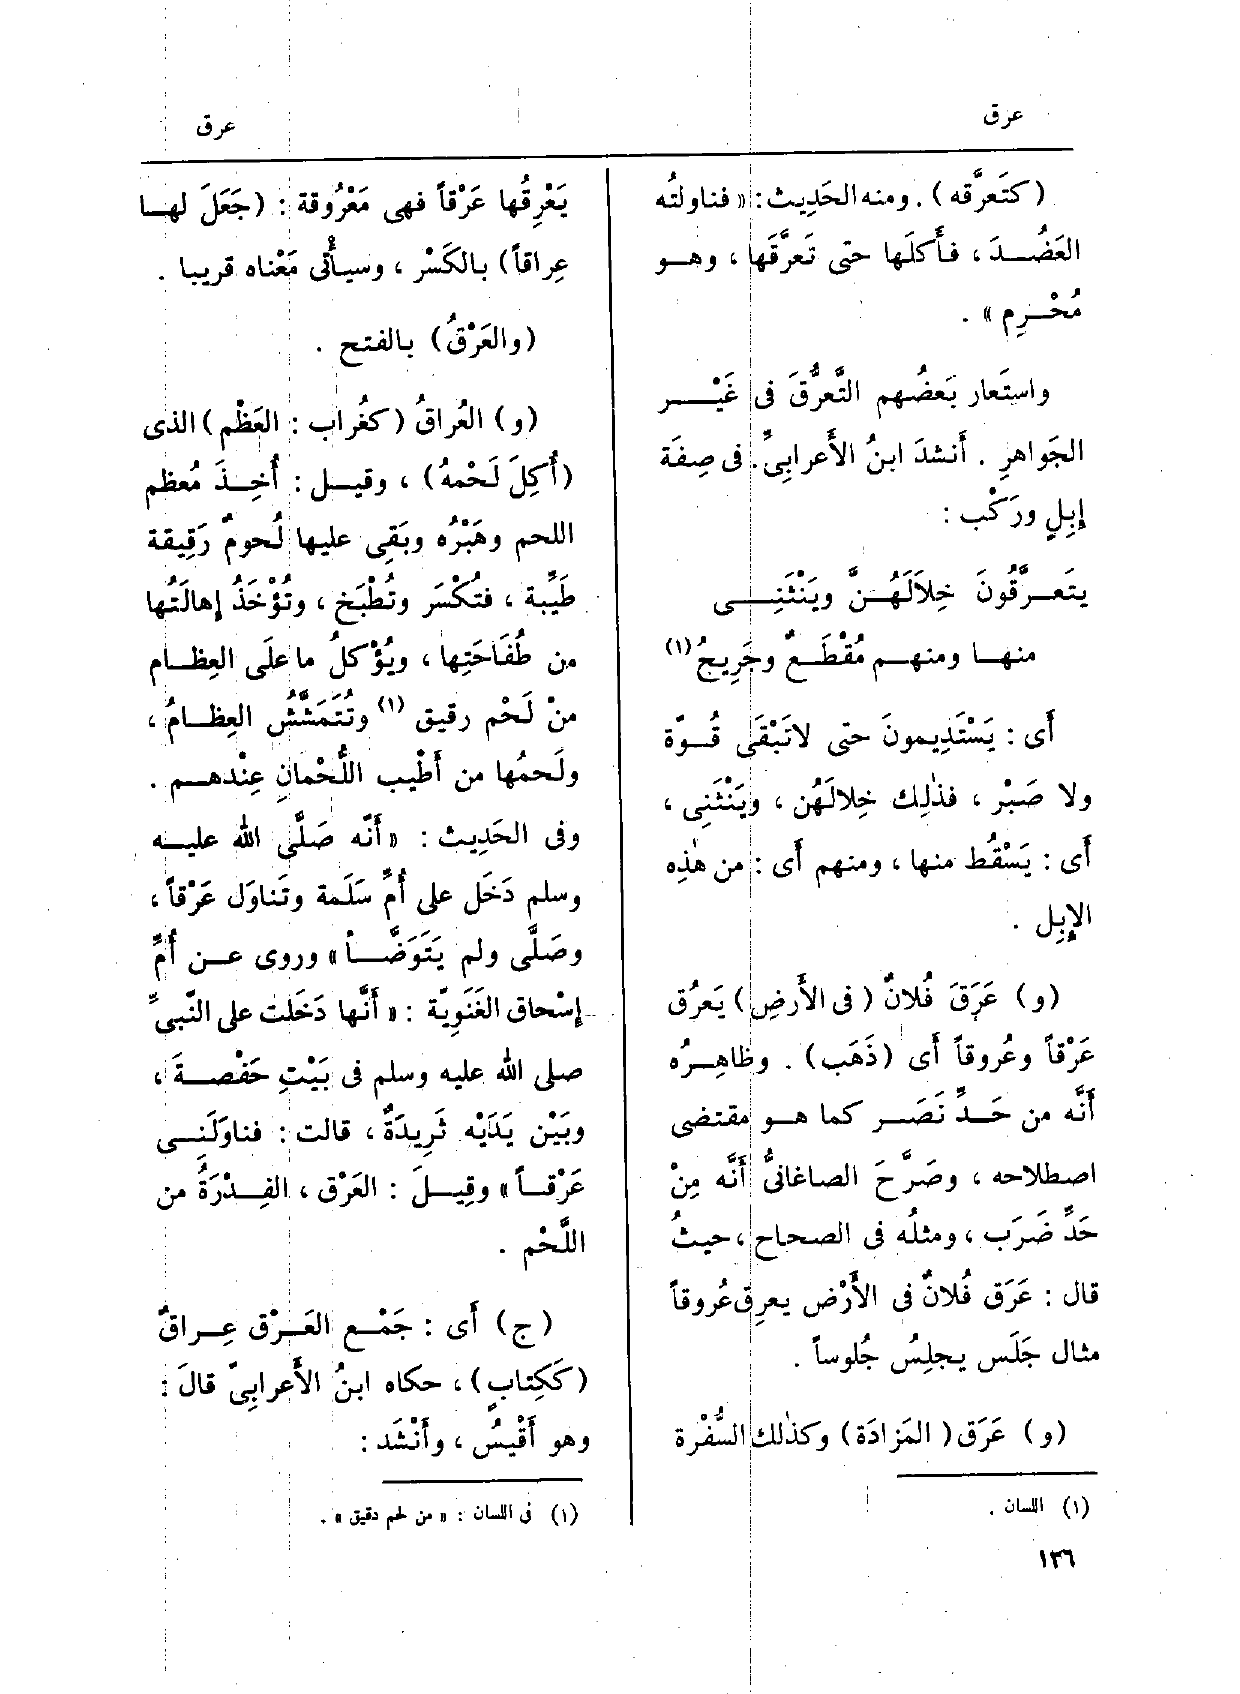 عرق
(كتَعرَّقه). ومنه الحَدِيث: « فناولتُه
العَضُـدَ ، فأَكلَها حتى تَعرَّقَها ، وهـو
مُحْـرِم » .
واستَعار بَعضُهم التَّعرُّقَ فى غَيْـر
الجَواهرِ . أَنشدَ ابنُ الأَعرابِىِّ. فى صِفَة
إبِلٍ ورَكْب :
يتَعـرَّقُونَ خِلاَلَهُـنَّ ويَنْثَنِـى
منهـا ومنهـم مُقْطَـعٌ وجَرِيحُ (١)
أَى : يَسْتَدِيمونَ حتى لاتَبْقَى قُـوّة
ولا صَبْر ، فذٰلِك خِلالَهُن ، ويَنْثَنِى ،
أَى : يَسْقُط منها ، ومنهم أَى : من هٰذِه
الإِبِل .
(و) عَرَقَ فُلانٌ (فى الأَرضِ) يَعرُق
عَرْقاً وعُروقاً أَى (ذَهَب) . وظاهِـرُه
أَنَّه من حَـدِّ نَصَـر كما هـو مقتضى
اصطلاحه ، وصَرَّحَ الصاغانىُّ أَنَّه مِنْ
حَدِّ ضَرَب ، ومثلُه فى الصحاح ، حيثُ
قال : عَرَق فُلانٌ فى الأَرْض يعرِق عُروقاً
مثال جَلَس يجلِسُ جُلوساً .
(و) عَرَق (المَزادَة) وكذٰلك السُّفْرة
(١) اللسان .
١٣٦
عرق
يَعْرِقُها عَرْقاً فهى مَعْرُوقة : (جَعَلَ لهـا
عِراقاً) بالكَسْر ، وسيأْتى مَعْناه قريبا .
(والعَرْقُ) بالفتح .
(و) العُراقُ (كغُراب : العَظْم) الذى
(أُكِلَ لَحْمهُ) ، وقيـل : أُخِـذَ مُعظم
اللحم وهَبْرُه وبَقِى عليها لُحومٌ رَقِيقة
طَيِّبة ، فتُكْسَر وتُطْبَخ ، وتُؤْخَذُ إهالَتُها
من طُفَاحَتِها ، ويُؤْكلُ ما علَى العِظـام
منْ لَحْم رقيق (١) وتُتَمَشَّشُ العِظـامُ ،
ولَحمُها من أَطْيب اللُّحْمانِ عِنْدهـم .
وفى الحَدِيث : « أَنَّه صَلَّى الله عليـه
وسلم دَخَل على أُمِّ سَلَمة وتَناوَل عَرْقاً ،
وصَلَّى ولم يَتَوَضَّـأ » وروى عـن أُمِّ
إسْحاق الغَنَوِيّة : « أَنَّها دَخَلت على النَّبىِّ
صلى الله عليه وسلم فى بَيْتِ حَفْصـةَ ،
وبَيْن يَدَيْه ثَرِيدَةٌ ، قالت : فناوَلَنِـى
عَرْقـاً » وقِيـلَ : العَرْق ، الفِـدْرَةُ من
اللَّحْم .
(ج) أَى : جَمْـع العَـرْق عِـراقٌ
(كَكِتابٍ) ، حكاه ابنُ الأَعرابِىّ قالَ :
وهو أَقْيسُ ، وأَنْشَد :
(١) فى اللسان : « من لحم دقيق » .